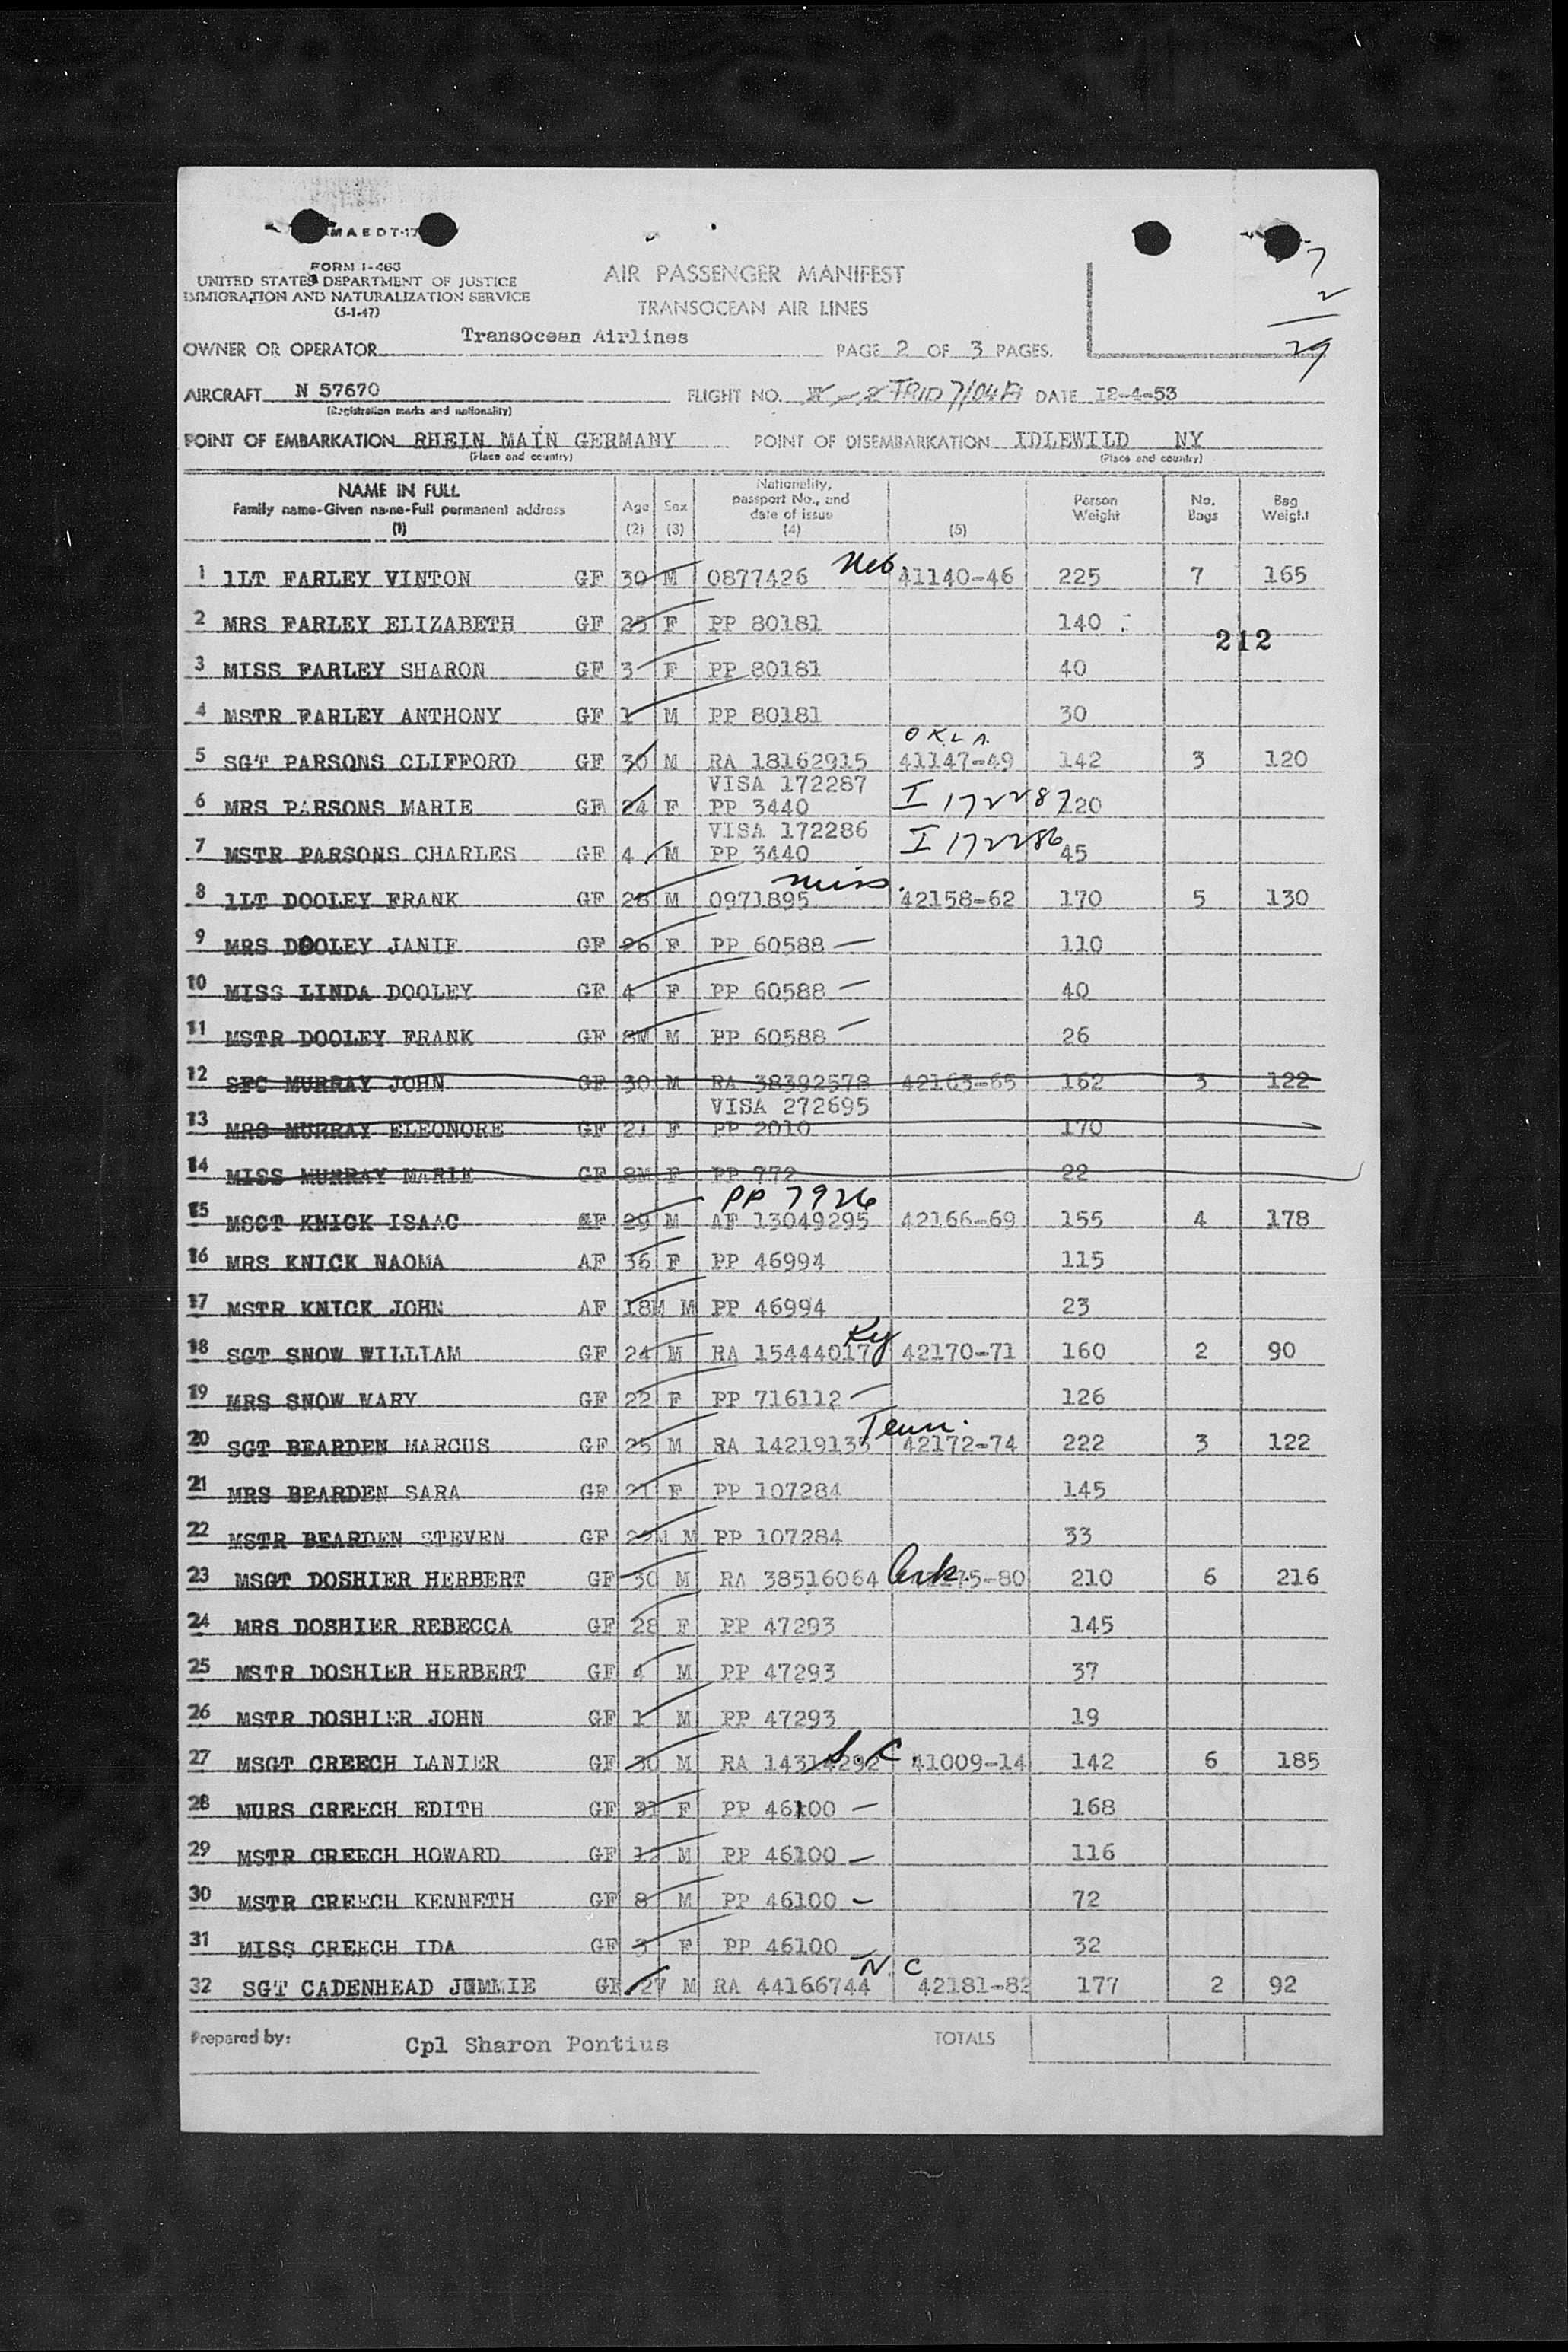 MAEDT-17
FORM I-463
UNITED STATES DEPARTMENT OF JUSTICE
IMMIGRATION AND NATURALIZATION SERVICE
(5-1-47)
AIR PASSENGER MANIFEST
TRANSOCEAN AIR LINES
7
2
29
OWNER OR OPERATOR Transocean Airlines PAGE 2 OF 3 PAGES.
AIRCRAFT N 57670 FLIGHT NO. DATE 12-4-53
(Registration marks and nationality)
POINT OF EMBARKATION RHEIN MAIN GERMANY POINT OF DISEMBARKATION IDLEWILD NY
(Place and country) (Place and country)
NAME IN FULL
Family name-Given name-Full permanent address
(1)
Age
(2)
Sex
(3)
Nationality,
passport No., and
date of issue
(4)
(5)
Person
Weight
No.
Bags
Bag
Weight
1 1LT FARLEY VINTON GF 30 M 0877426 Neb 41140-46 225 7 165
2 MRS FARLEY ELIZABETH GF 25 F PP 80181 140
212
3 MISS FARLEY SHARON GF 3 F PP 80181 40
4 MSTR FARLEY ANTHONY GF 1 M PP 80181 30
OKLA.
5 SGT PARSONS CLIFFORD GF 30 M RA 18162915 41147-49 142 3 120
VISA 172287
6 MRS PARSONS MARIE GF 24 F PP 3440 I 172287 120
VISA 172286
7 MSTR PARSONS CHARLES GF 4 M PP 3440 I 172286 45
miss.
8 1LT DOOLEY FRANK GF 28 M 0971895 42158-62 170 5 130
9 MRS DOOLEY JANIE GF 26 F PP 60588 — 110
10 MISS LINDA DOOLEY GF 4 F PP 60588 — 40
11 MSTR DOOLEY FRANK GF 8M M PP 60588 — 26
12 SFC MURRAY JOHN GF 30 M RA 38392578 42163-65 162 3 122
VISA 272695
13 MRS MURRAY ELEONORE GF 21 F PP 2010 170
14 MISS MURRAY MARIE GF 8M F PP 772 22
PP 7926
15 MSGT KNICK ISAAC AF 29 M AF 13049295 42166-69 155 4 178
16 MRS KNICK NAOMA AF 36 F PP 46994 115
17 MSTR KNICK JOHN AF 18M M PP 46994 23
Ky
18 SGT SNOW WILLIAM GF 24 M RA 15444017 42170-71 160 2 90
19 MRS SNOW MARY GF 22 F PP 716112 — 126
Tenn.
20 SGT BEARDEN MARCUS GF 25 M RA 14219135 42172-74 222 3 122
21 MRS BEARDEN SARA GF 21 F PP 107284 145
22 MSTR BEARDEN STEVEN GF 22M M PP 107284 33
23 MSGT DOSHIER HERBERT GF 30 M RA 38516064 Ark. 42175-80 210 6 216
24 MRS DOSHIER REBECCA GF 28 F PP 47293 145
25 MSTR DOSHIER HERBERT GF 4 M PP 47293 37
26 MSTR DOSHIER JOHN GF 1 M PP 47293 19
27 MSGT CREECH LANIER GF 30 M RA 14314292 S.C. 41009-14 142 6 185
28 MURS CREECH EDITH GF 31 F PP 46100 — 168
29 MSTR CREECH HOWARD GF 12 M PP 46100 — 116
30 MSTR CREECH KENNETH GF 8 M PP 46100 — 72
31 MISS CREECH IDA GF 3 F PP 46100 32
N.C
32 SGT CADENHEAD JIMMIE GF 27 M RA 44166744 42181-82 177 2 92
Prepared by: Cpl Sharon Pontius TOTALS